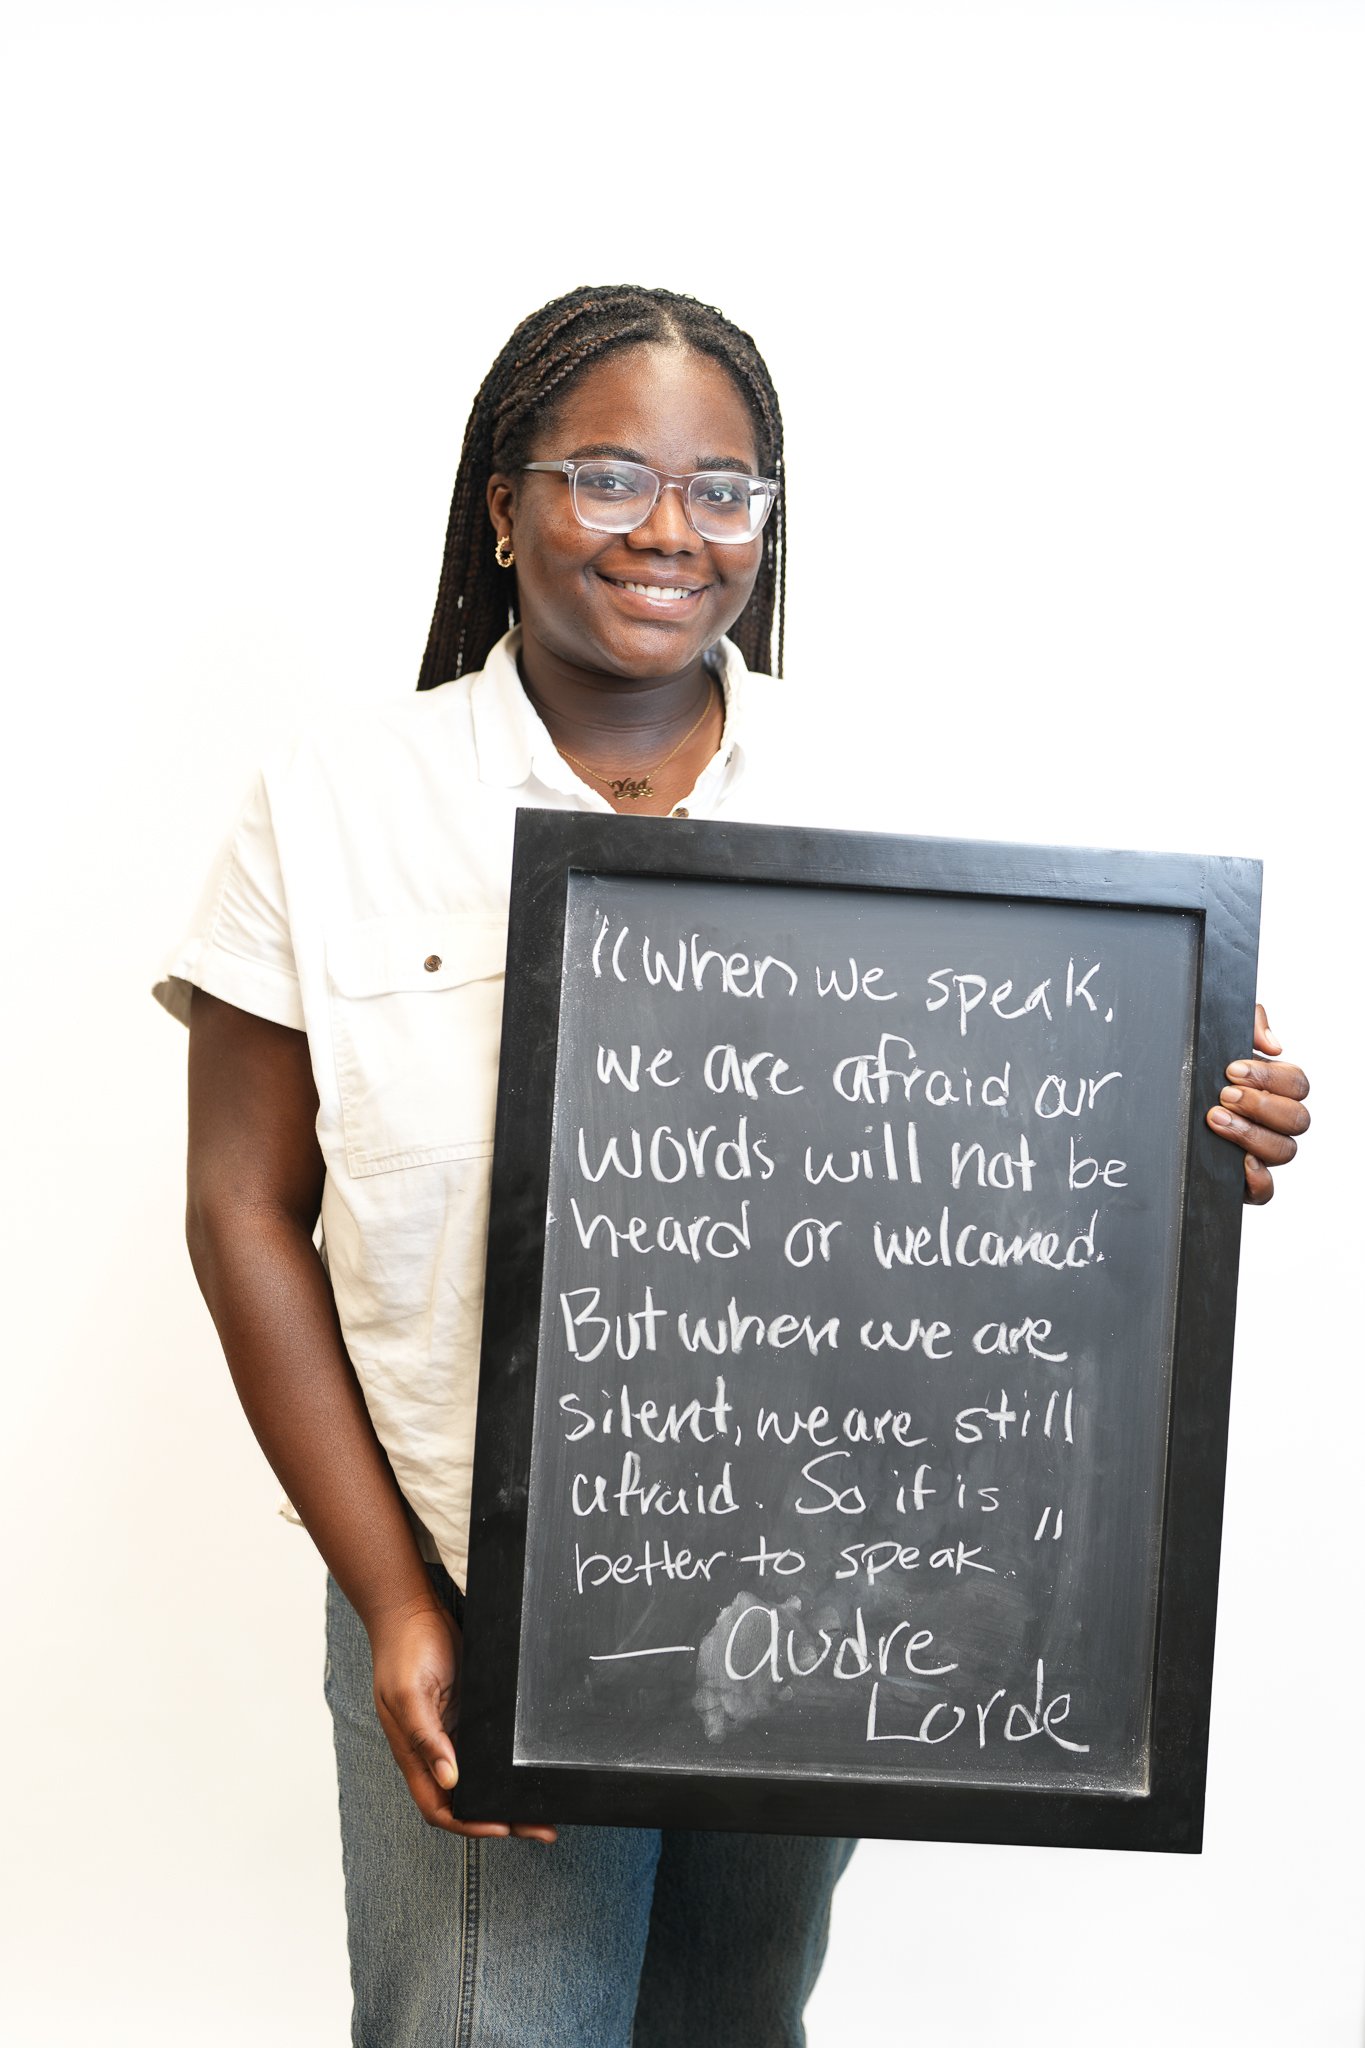 Yaa
"When we speak,
we are afraid our
words will not be
heard or welcomed.
But when we are
silent, we are still
afraid. So it is
better to speak."
— Audre
Lorde